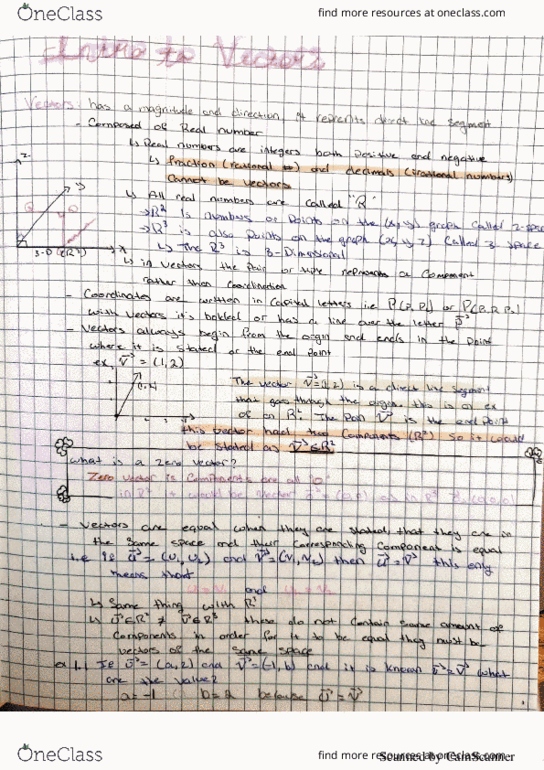 OneClass
find more resources at oneclass.com
Intro to Vectors
Vectors: has a magnitude and direction, it reprents direct line segment
- Composed of Real number
↳ Real numbers are integers both positive and negative
↳ fraction (rational #) and decimals (irrational numbers)
Cannot be vectors
↳ All real numbers are called "R"
→ R² is numbers or points on the (x,y) graph called 2-space
→ R³ is also points on the graph (x,y,z) called 3-space
↳ The R³ is 3-Dimensional
↳ in vectors the pair or triple represents a component
rather than coordination
- Coordinates are written in capital letters i.e P(P₁,P₂) or
with vectors it's bolded or has a line over the letter
- Vectors always begin from the origin and ends in the point
where it is stated or the end point
ex, v = (1,2)
The vector v=(1,2) is a direct line segment
that goes through the this is an ex
of an R². The Point is the end point
this vector had two components (R²) so it would
be stated as v∈R²
What is a zero vector?
Zero vector is components are all "0"
in R² it would be vector = (0,0) as in R³
- Vectors are equal when they are stated that they are in
the same space and their corresponding component is equal
i.e if u = (u₁, u₂) and v = (v₁, v₂) then u = v this only
means that
and
↳ Same thing with R³
↳ u∈R² ≠ v∈R³ these do not contain same amount of
components in order for it to be equal they must be
vectors of the same space
ex 1.1 If u = (a,2) and v = (-1,b) and it is known u=v what
are the value?
a = -1 b = 2 because u = v
OneClass
find more resources at oneclass.com
Scanned by CamScanner